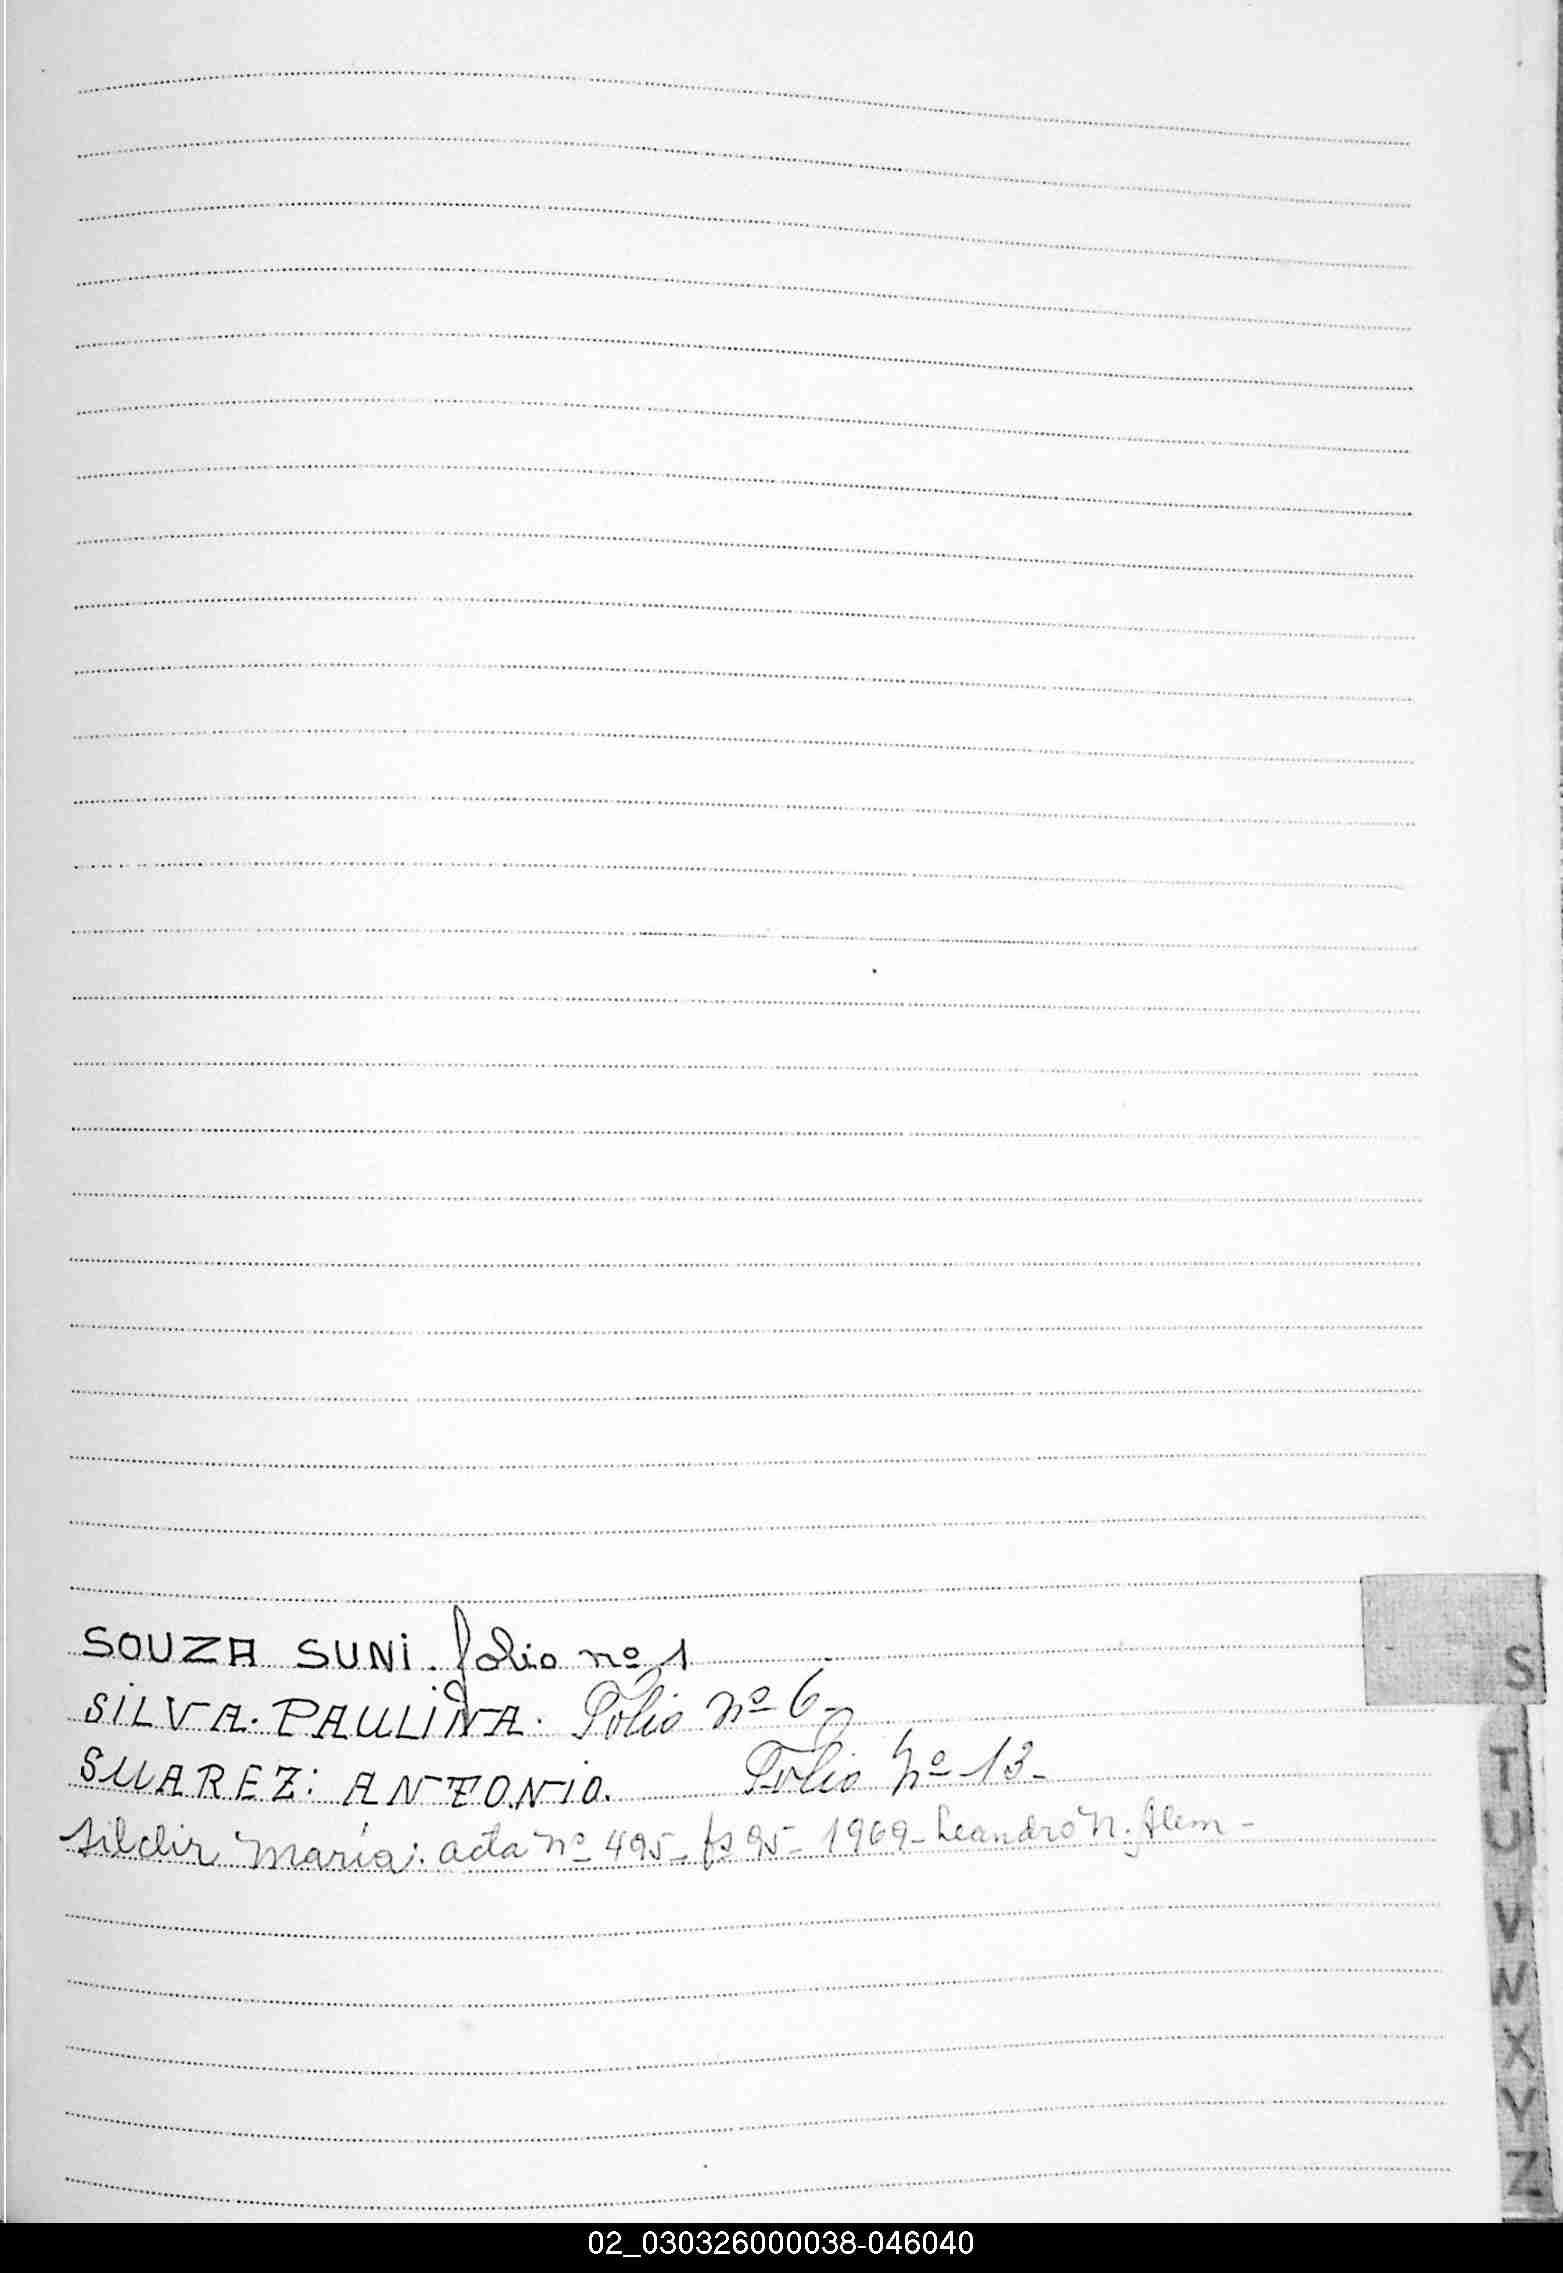 SOUZA SUNI. folio nº 1
S
SILVA. PAULINA. Folio nº 6_
SUAREZ: ANTONIO. Folio Nº 13_
T
María: acta nº 495_ fs 95_ 1969_ Leandro N. Alem_
U
V
W
X
Y
Z
02_030326000038-046040